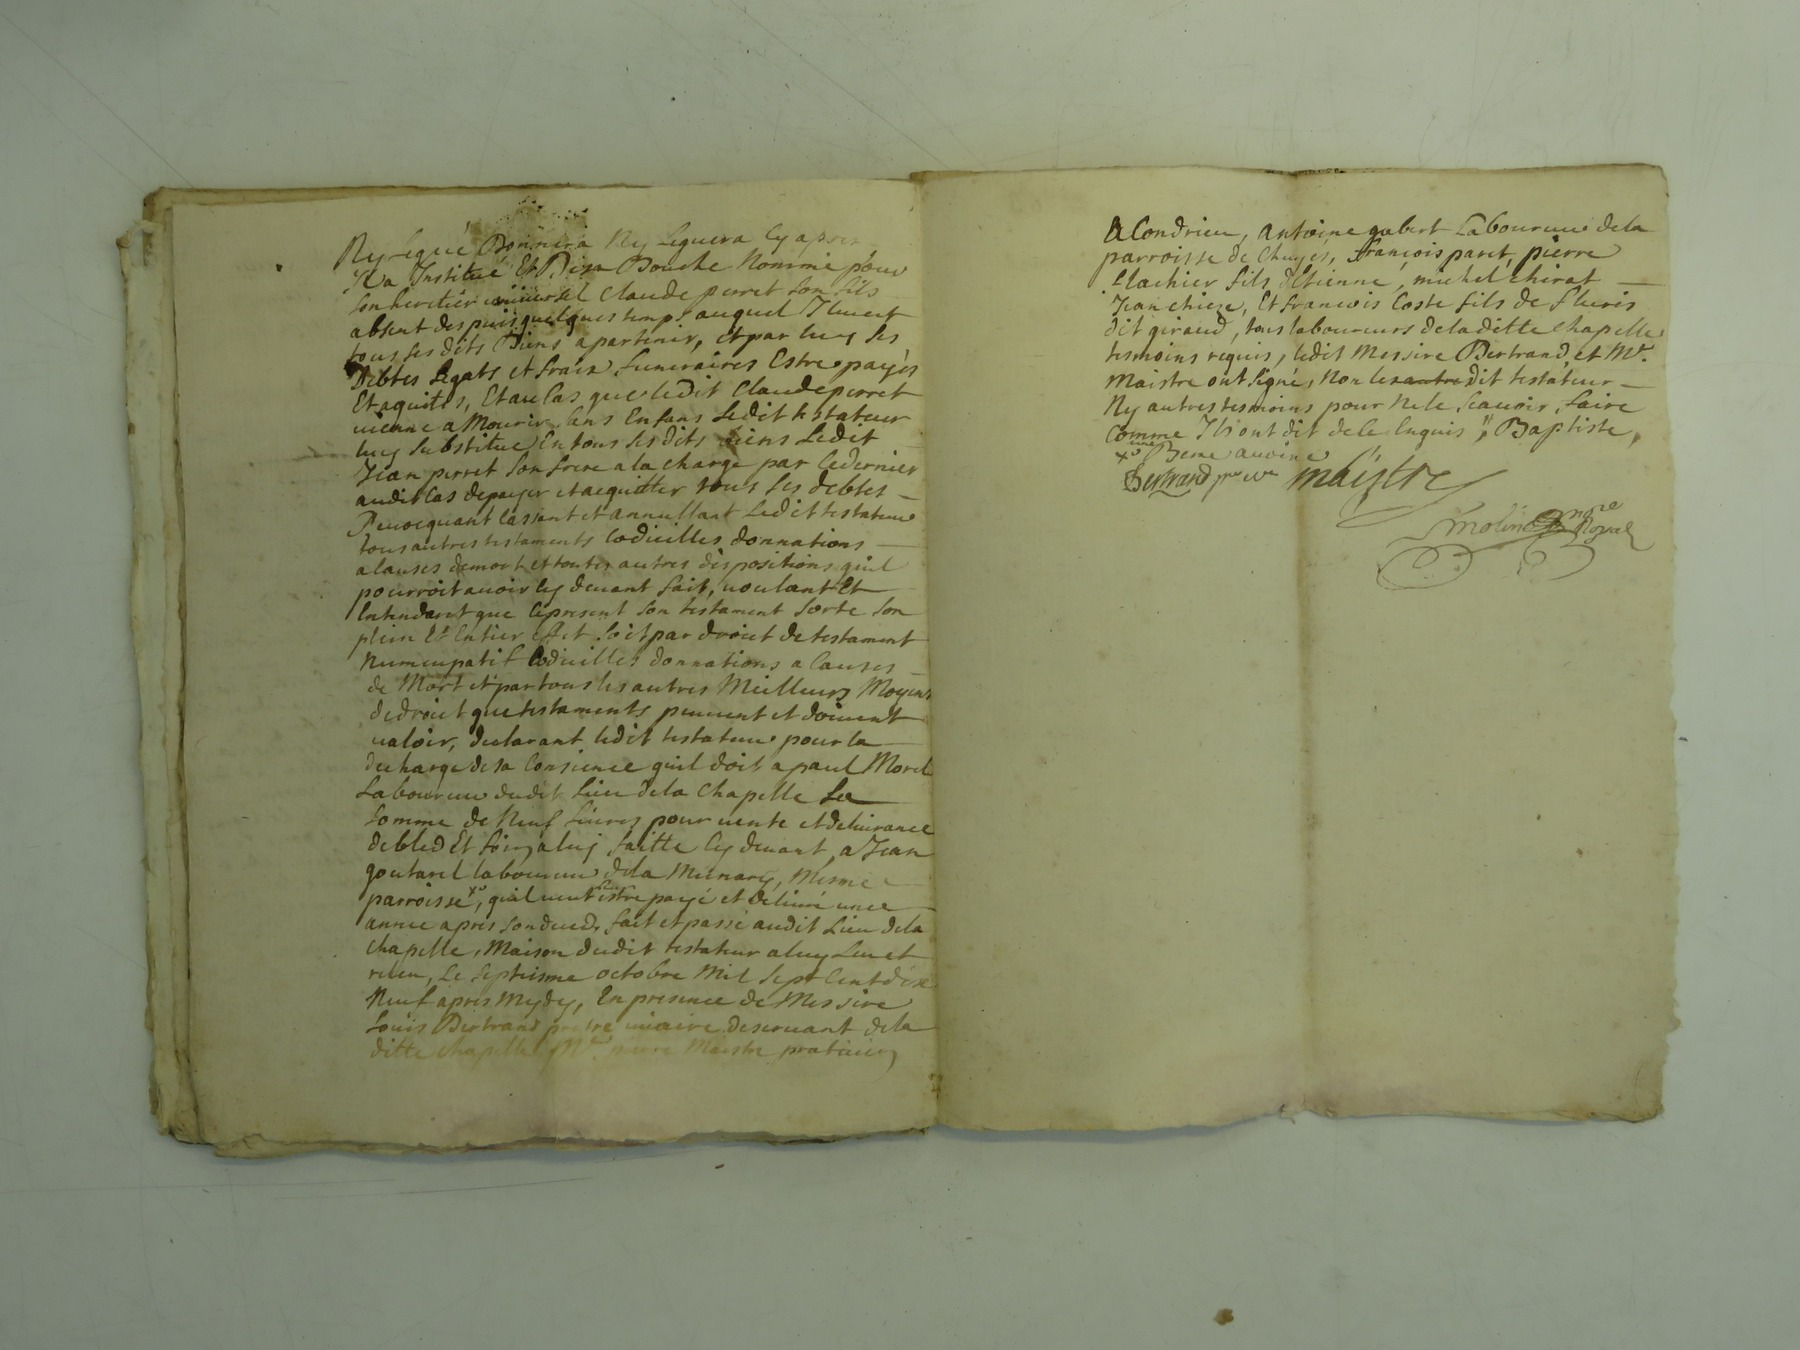 Ny Legué Donnera Ny Leguera Cy apres
Il a Institué Et De sa Bouche Nommé pour
son heretier universel Claude perret son fils
absent despuis quelques temps auquel Il veut
tous ses dits Biens apartenir, et par luy ses
Debtes Legats et fraix funeraires Estre payés
Et aquités, Et au Cas que ledit Claude perret
vienne a Mourir sans Enfans Ledit testateur
luy substitue En tous ses dits biens Ledit
Jean perret son frere a la charge par Ce dernier
audit Cas de payer et acquitter tous ses debtes
Revocquant Cassant et annullant Ledit testateur
tous autres testaments Codicilles donnations
a Causes de mort et toutes autres dispositions quil
pourroit avoir Cy devant fait, voulant Et
Entendant que Ce present son testament sorte son
plein Et Entier effet soit par droict de testament
Numcupatif Codicilles donnations a Causes
de Mort et par tous les autres Meilleurs Moyens
de droict que testaments peuvent et doivent
valoir, declarant ledit testateur pour la
decharge de sa Consience quil doit a paul Morel
Laboureur dudit Lieu de la Chapelle La
somme de Neuf Livres pour vente et delivrance
de bled Et a luy faitte Cy devant, a Jean
goutarel laboureur de la Mesme
parroisse xo, quil veut estre payé et delivré une
annee apres son deced, fait et passé audit Lieu de la
Chapelle, Maison dudit testateur a luy Leu et
releu, Le septiesme octobre Mil Sept Cent dix
Neuf apres Mydy, En presence de Messire
Louis Bertrand prestre vicaire deservant de la
ditte Chapelle Mr. pierre Maistre praticien
A Condrieu, antoine gabert Laboureur de la
parroisse de Chuyes, françois paret, pierre
flachier fils d'Etienne, michel chirat
Jean chieze, Et francois Coste fils de fleuris
dit giraud, tous laboureurs de la ditte Chapelle
tesmoins requis, ledit Messire Bertrand, et Mr.
Maistre ont signé, Non les autre dit testateur
Ny autres tesmoins pour Ne le scavoir faire
Comme Ils ont dit de ce Enquis, Baptiste,
xo une
Bertrand maistre
Molin
Royal